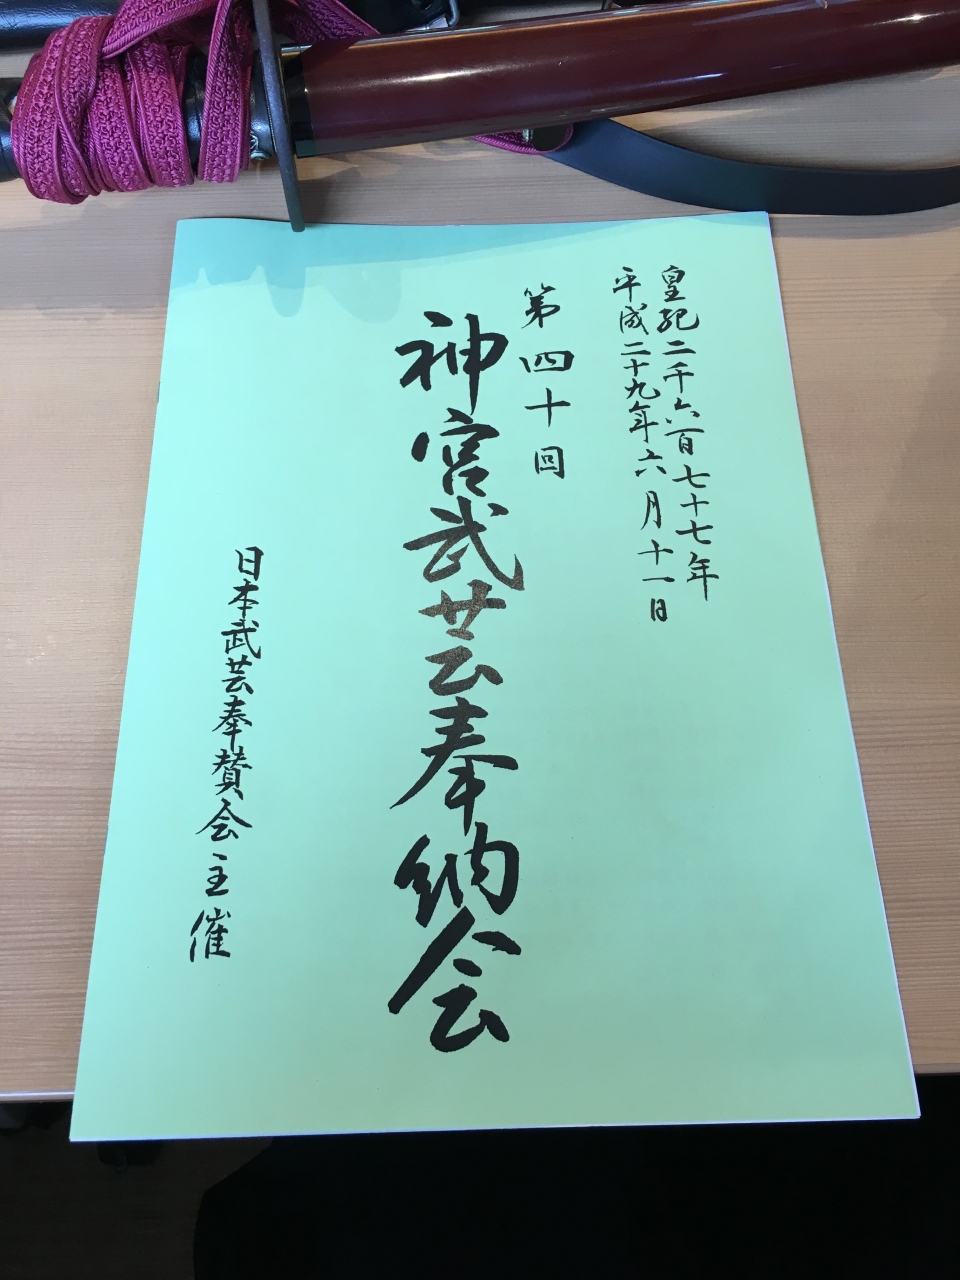 皇紀二千六百七十七年
平成二十九年六月十一日
第四十回
神宮武芸奉納会
日本武芸奉賛会主催